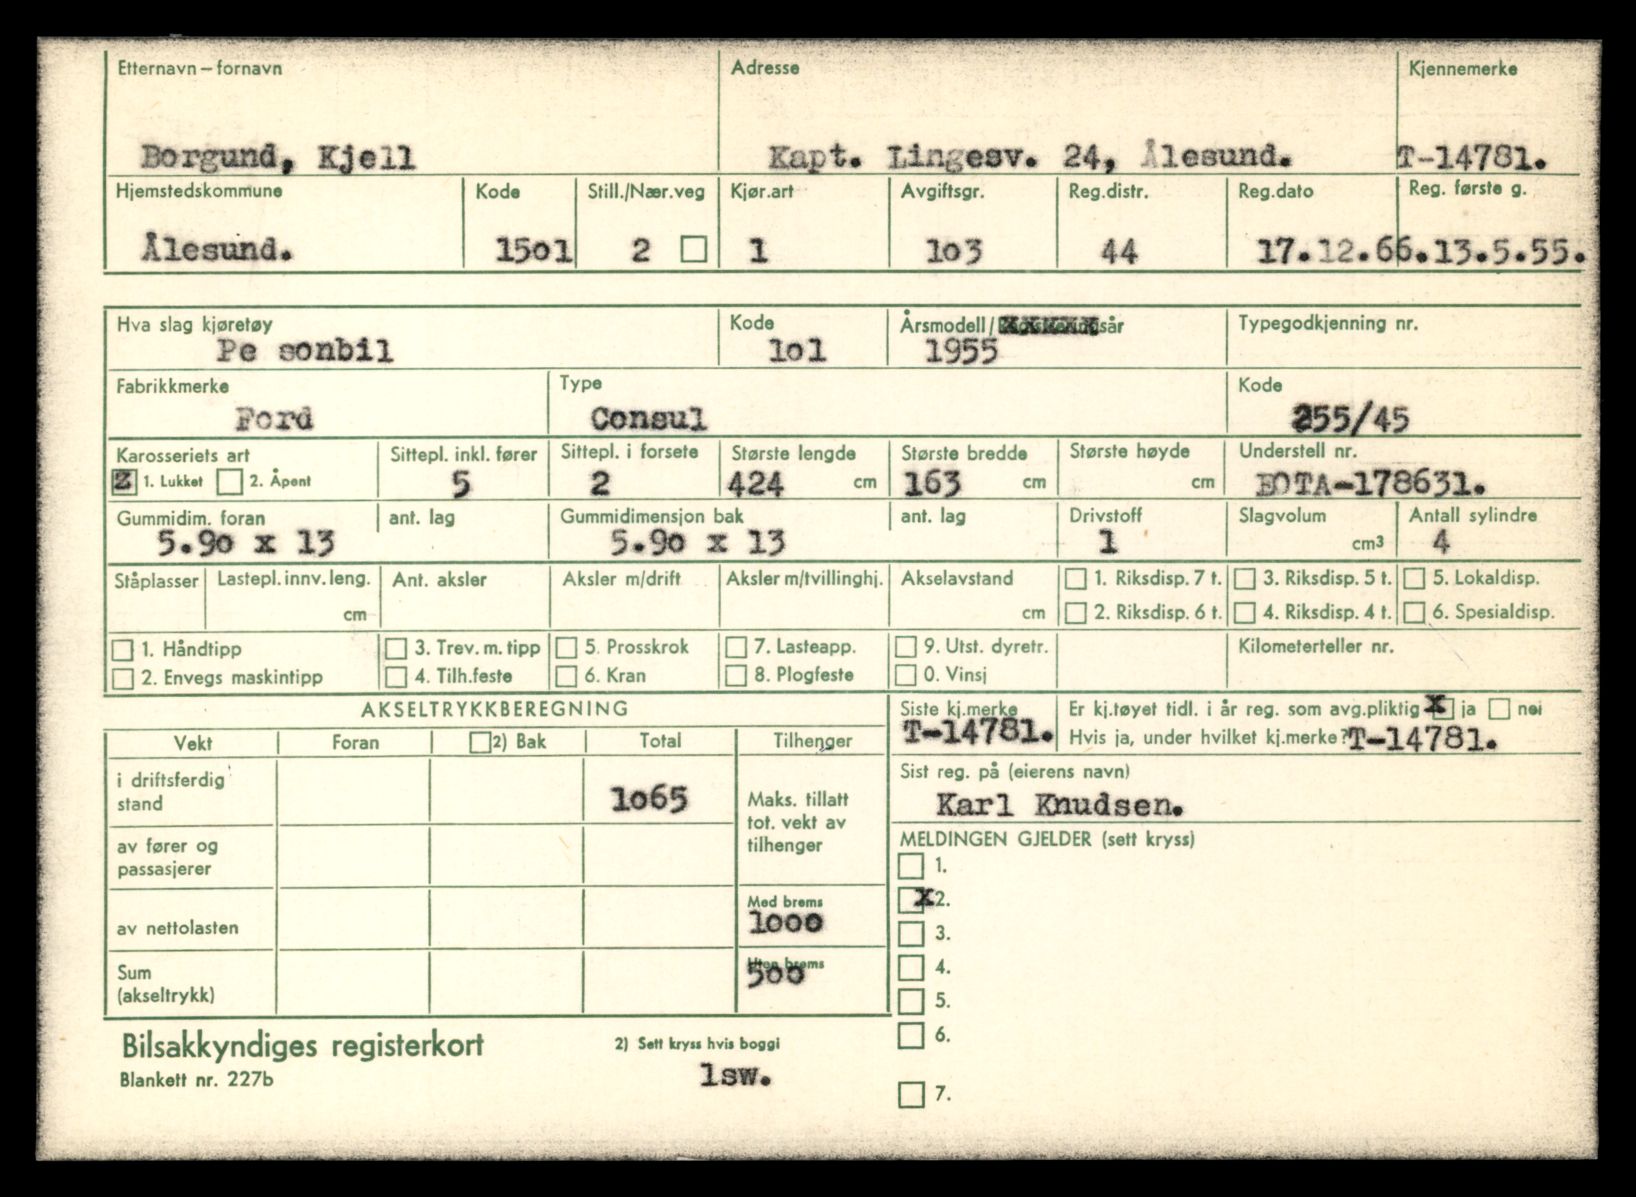 Etternavn – fornavn Adresse Kjennemerke
Borgund, Kjell Kapt. Lingesv. 24, Ålesund. T-14781.
Hjemstedskommune Kode Still./Nær.veg Kjør.art Avgiftsgr. Reg.distr. Reg.dato Reg. første g.
Ålesund. 15o1 2 1 1o3 44 17.12.66. 13.5.55.
Hva slag kjøretøy Kode Årsmodell/ år Typegodkjenning nr.
Pe sonbil 1o1 1955
Fabrikkmerke Type Kode
Ford Consul 255/45
Karosseriets art Sittepl. inkl. fører Sittepl. i forsete Største lengde Største bredde Største høyde Understell nr.
1. Lukket 2. Åpent 5 2 424 cm 163 cm cm EOTA-178631.
Gummidim. foran ant. lag Gummidimensjon bak ant. lag Drivstoff Slagvolum Antall sylindre
5.9o x 13 5.9o x 13 1 cm³ 4
Ståplasser Lastepl. innv. leng. Ant. aksler Aksler m/drift Aksler m/tvillinghj. Akselavstand 1. Riksdisp. 7 t. 3. Riksdisp. 5 t. 5. Lokaldisp.
cm cm 2. Riksdisp. 6 t. 4. Riksdisp. 4 t. 6. Spesialdisp.
1. Håndtipp 3. Trev. m. tipp 5. Prosskrok 7. Lasteapp. 9. Utst. dyretr. Kilometerteller nr.
2. Envegs maskintipp 4. Tilh.feste 6. Kran 8. Plogfeste 0. Vinsj
AKSELTRYKKBEREGNING Siste kj.merke Er kj.tøyet tidl. i år reg. som avg.pliktig x ja nei
T-14781. Hvis ja, under hvilket kj.merke? T-14781.
Vekt Foran 2) Bak Total Tilhenger
i driftsferdig
stand 1o65
Sist reg. på (eierens navn)
Karl Knudsen.
Maks. tillatt
tot. vekt av
tilhenger
av fører og
passasjerer
MELDINGEN GJELDER (sett kryss)
1.
x 2.
3.
4.
5.
6.
7.
Med brems
1ooo
av nettolasten
Uten brems
5oo
Sum
(akseltrykk)
Bilsakkyndiges registerkort 2) Sett kryss hvis boggi
Blankett nr. 227b lsw.